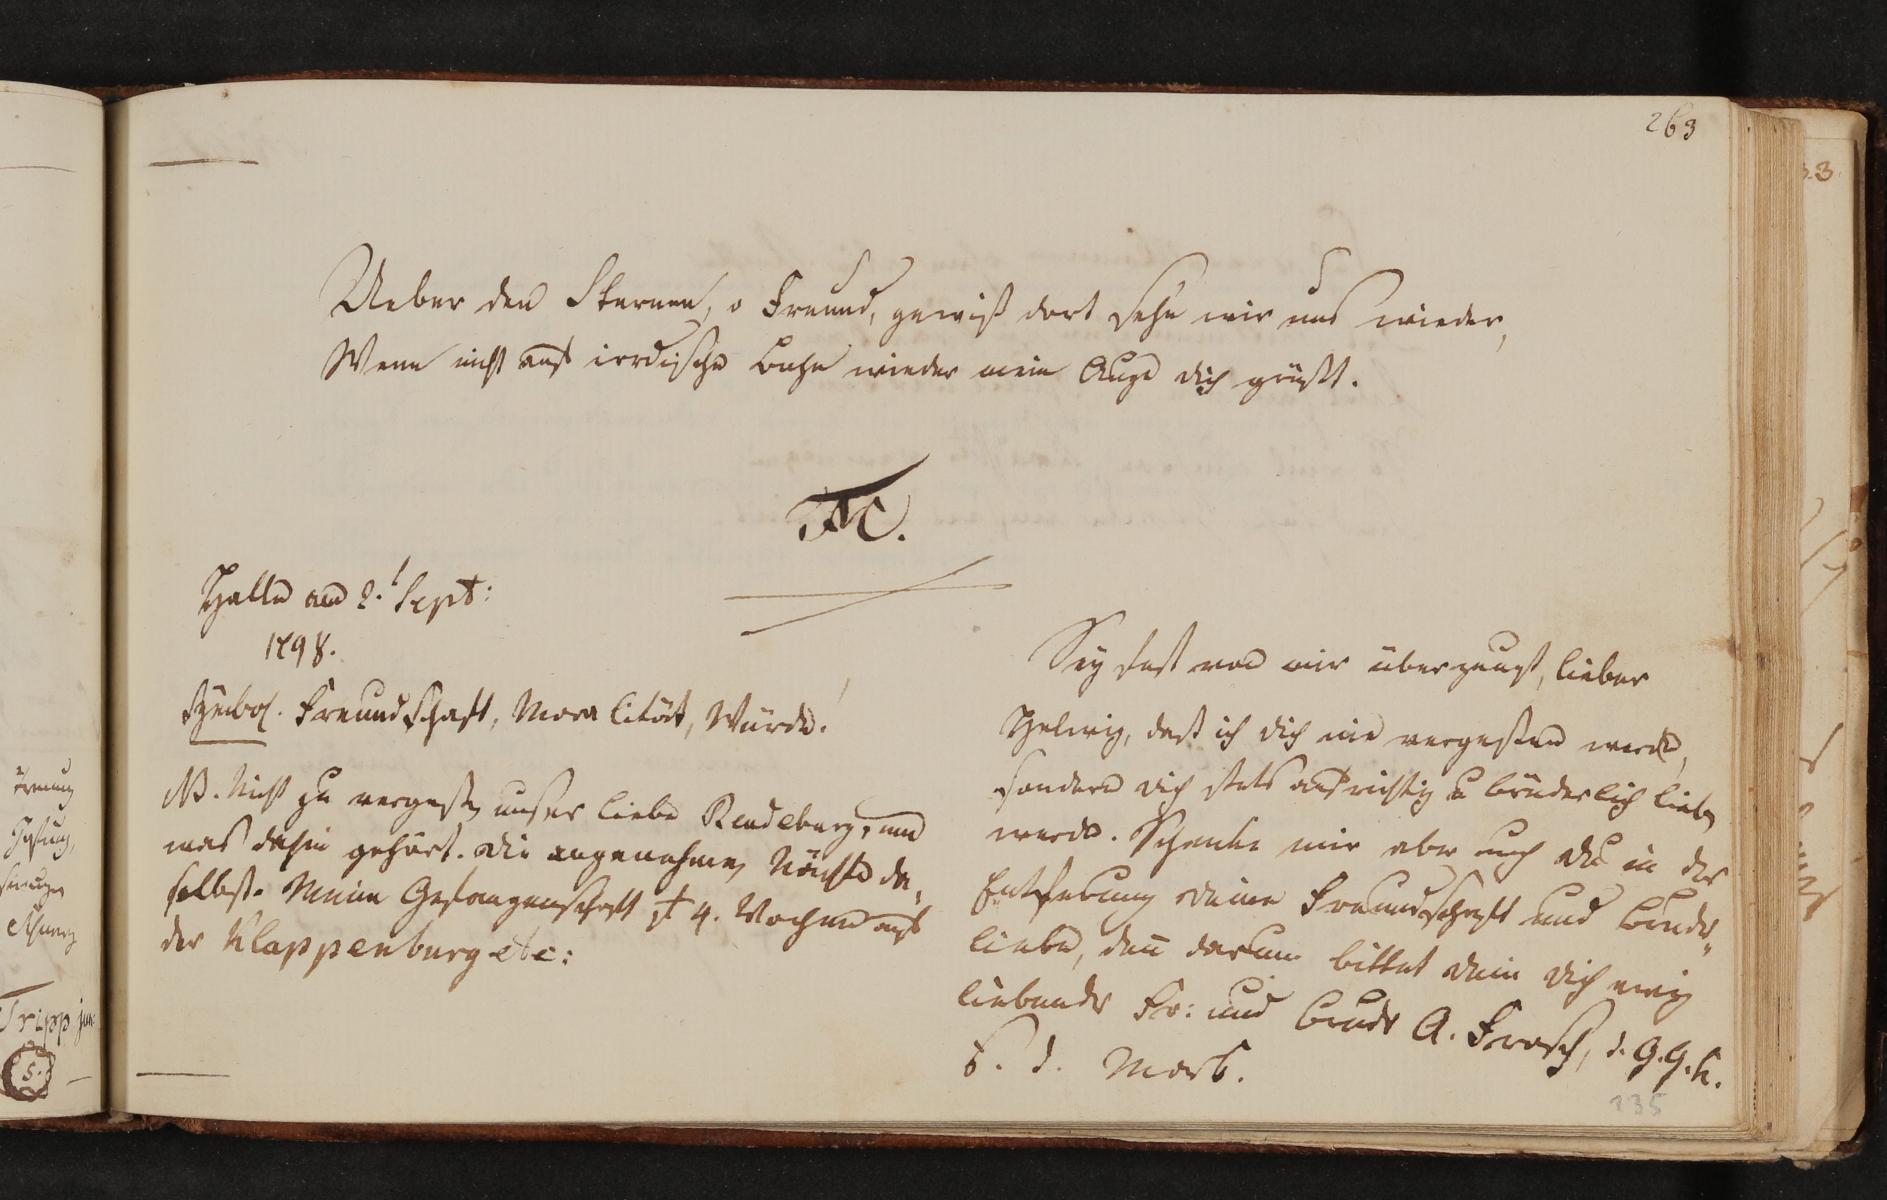 263
Ueber den Sternen, o Freund, gewiß dort sehn wir uns wieder,
Wenn nicht auf irrdische Bahn wieder mein Auge dich grüßt.
Halle am 2. Sept:
1798.
Symbol. Freundschaft, Moralität, Würde!
NB. Nicht zu vergeßen unser liebe Rendeburg, und
was dahin gehört. die angenehmen Nächte da-
selbst. Meine Gefangenschaft 4. Wochen auf
der Klappenburg etc:
Sey fest von mir überzeugt, lieber
Helwig, daß ich dich nie vergeßen werde,
sondern dich stets aufrichtig u brüderlich lieben
werde. Schenke mir aber auch du in der
Entfernung deine Freundschaft und Bruder-
liebe, denn darum bittet dein dich ewig
liebender Fr: und Bruder A. Frosch, d. G. G. K.
d. Mark.
235
Tripp jun